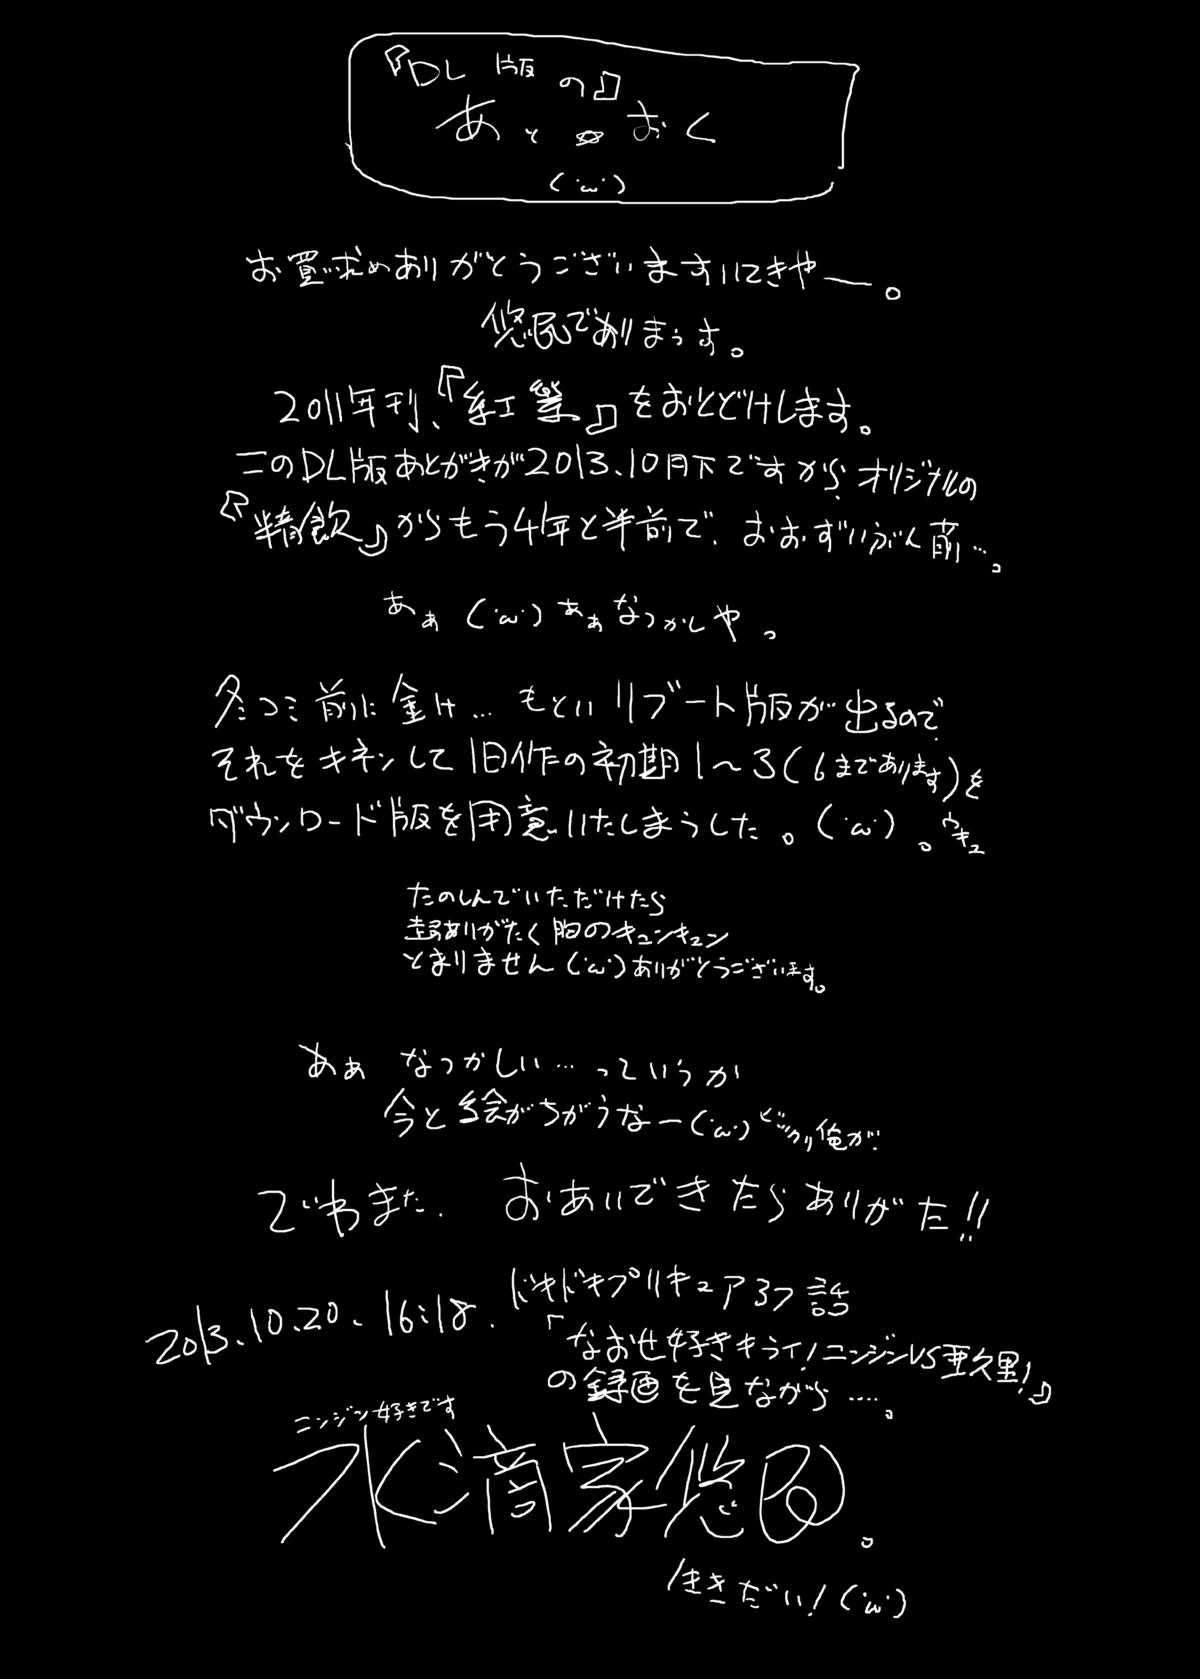 『DL版の』
あと☆おく
(・ω・)
お買い求めありがとうございますいてきやー。
悠民でありまうす。
2011年刊、『紅業』をおとどけします。
このDL版あとがきが2013.10月下ですから、オリジナルの
『精飲』からもう4年と半前で、おおずいぶん前…。
あぁ(・ω・)あぁなつかしや。
冬コミ前に金け…もといリブート版が出るので
それをキネンして旧作の初期1〜3(6まであります)を
ダウンロード版を用意いたしまうした。(・ω・)。ウキュ
たのしんでいただけたら
超ありがたく胸のキュンキュン
とまりません(・ω・)ありがとうございます。
あぁ なつかしい…っていうか
今と絵がちがうなー(・ω・)ビックリ俺が
でわまた、おあいできたらありがた!!
2013.10.20. 16:18. ドキドキプリキュア37話
「なおせ好きキライ!ニンジンVS亜久里!」
の録画を見ながら…。
ニンジン好きです
水滴家悠
生きだい!(・ω・)